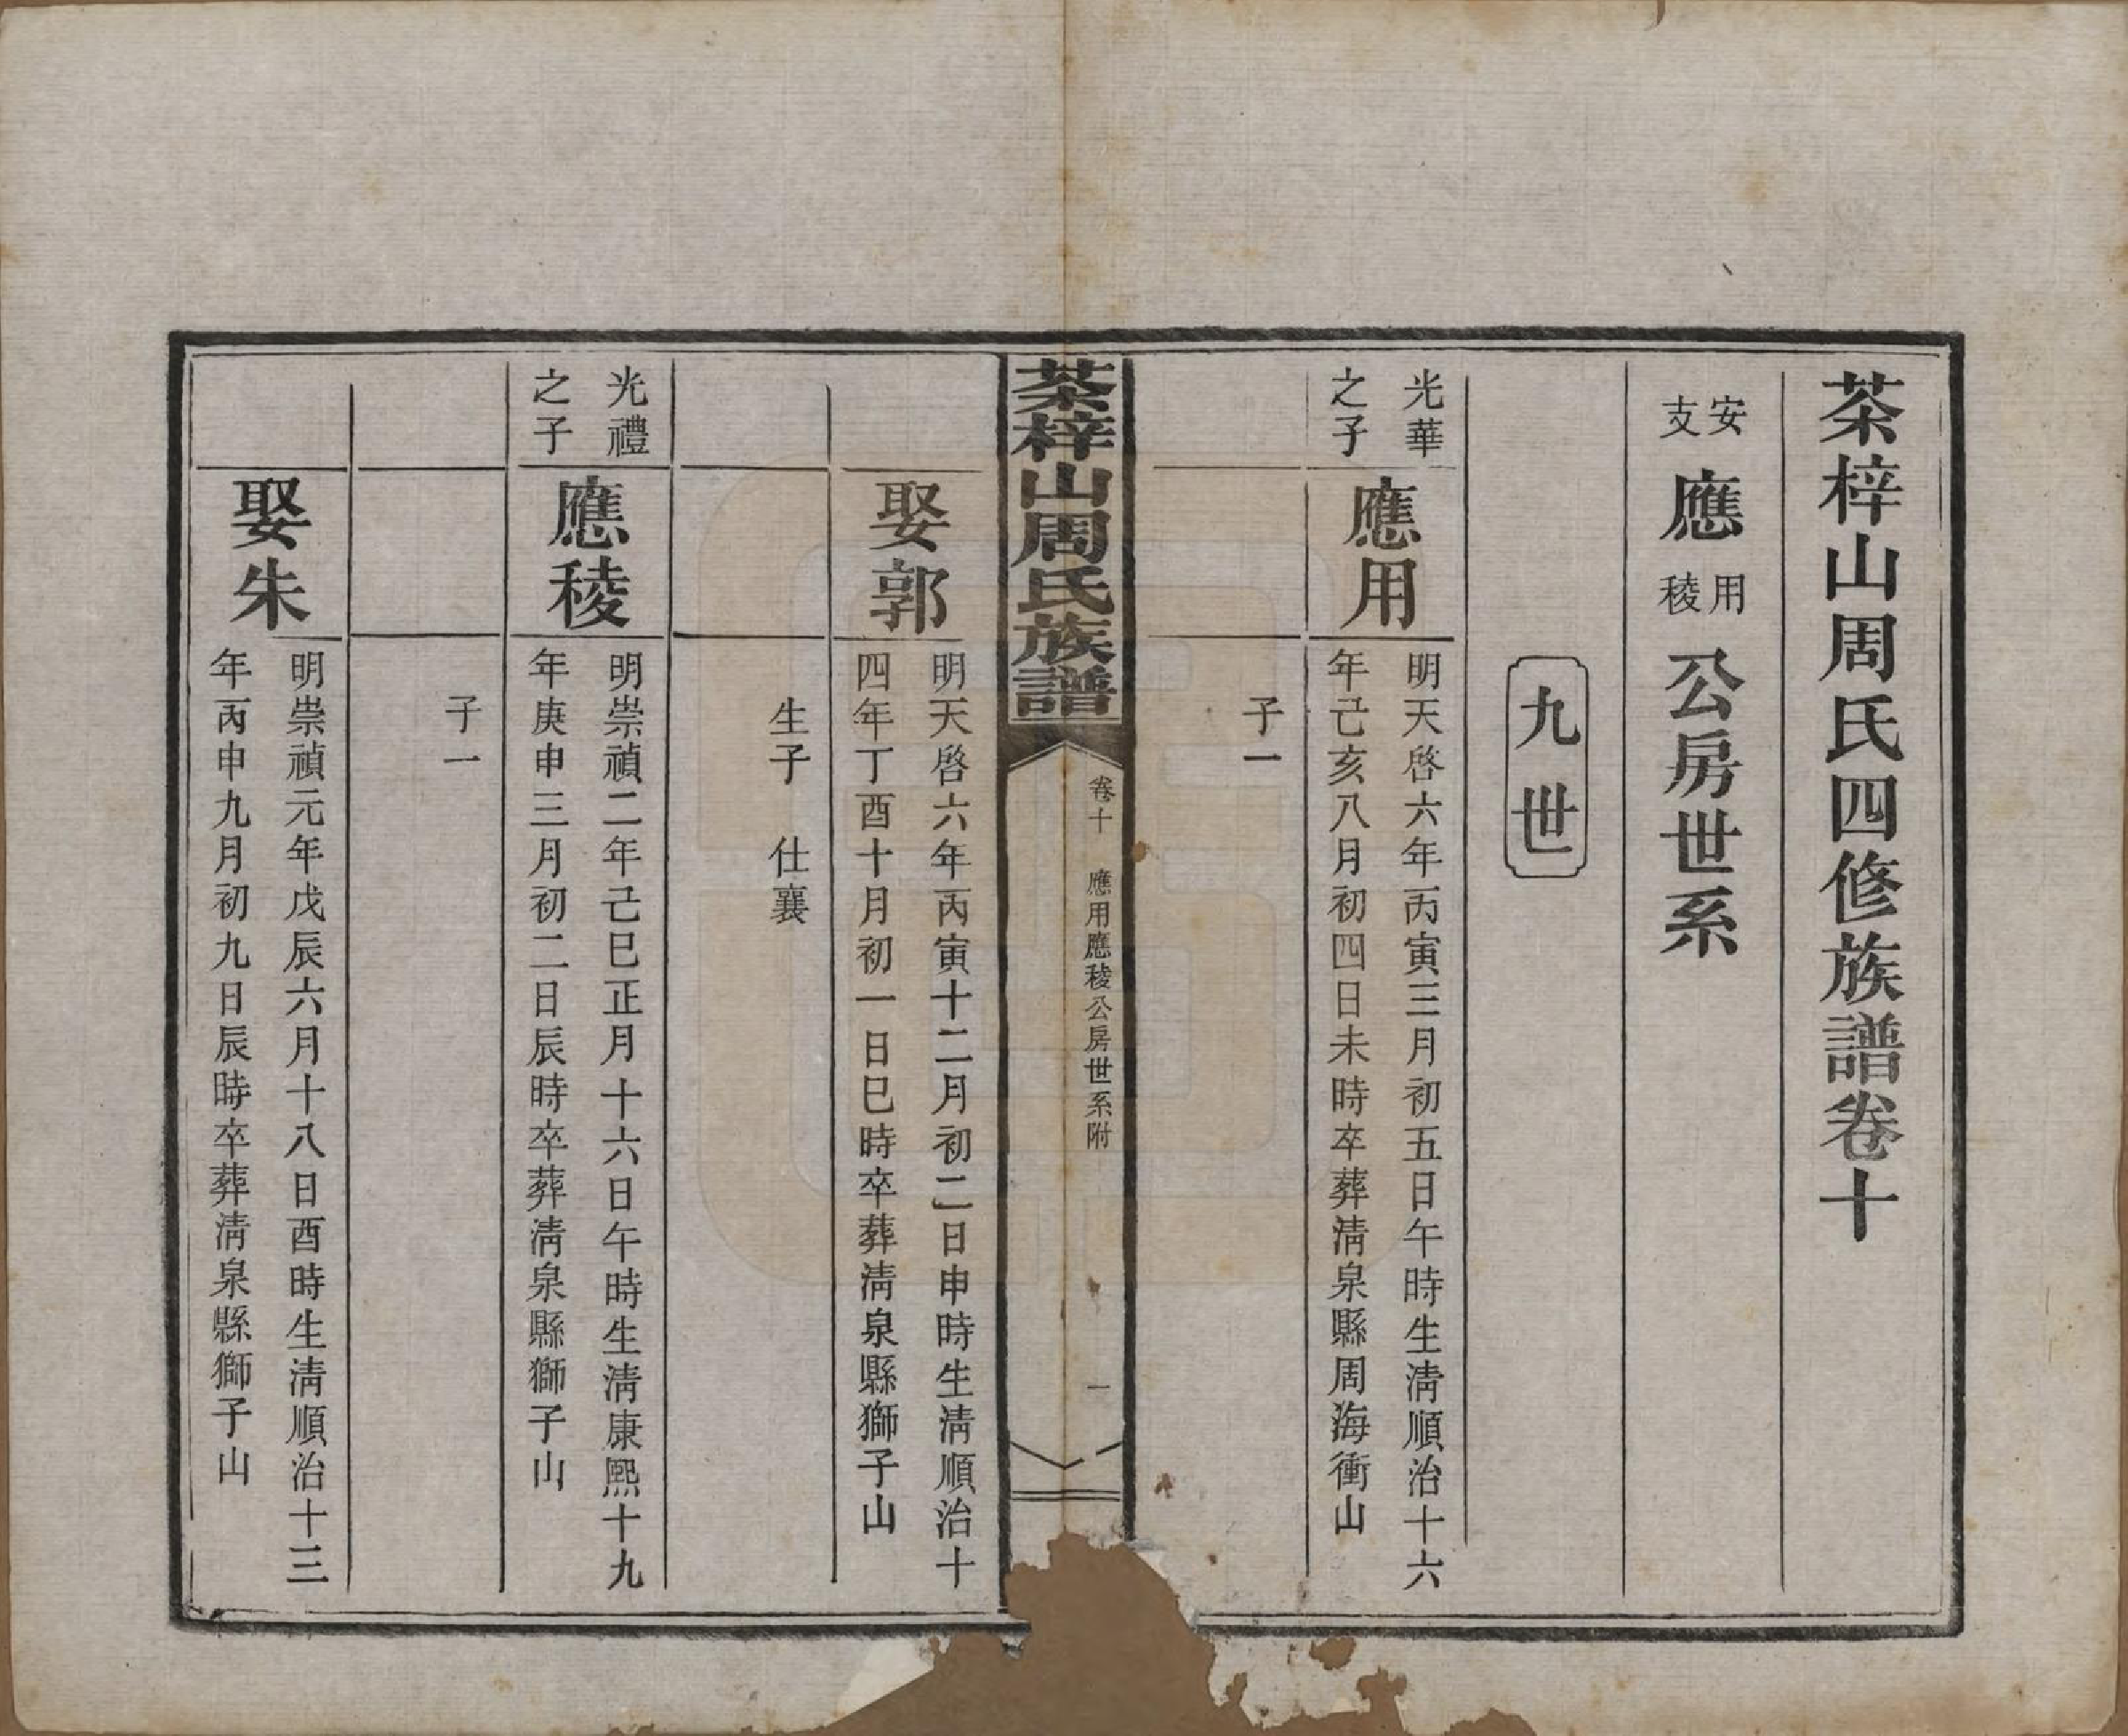 茶梓山周氏四修族譜卷十
安支應用稜公房世系
九世
光華之子
應用
明天啓六年丙寅三月初五日午時生淸順治十六
年己亥八月初四日未時卒葬淸泉縣周海衝山
子一
茶梓山周氏族譜
卷十 應用應稜公房世系附
一
娶郭
明天啓六年丙寅十二月初二日申時生淸順治十
四年丁酉十月初一日巳時卒葬淸泉縣獅子山
生子 仕襄
光禮之子
應稜
明崇禎二年己巳正月十六日午時生淸康熙十九
年庚申三月初二日辰時卒葬淸泉縣獅子山
子一
娶朱
明崇禎元年戊辰六月十八日酉時生淸順治十三
年丙申九月初九日辰時卒葬淸泉縣獅子山